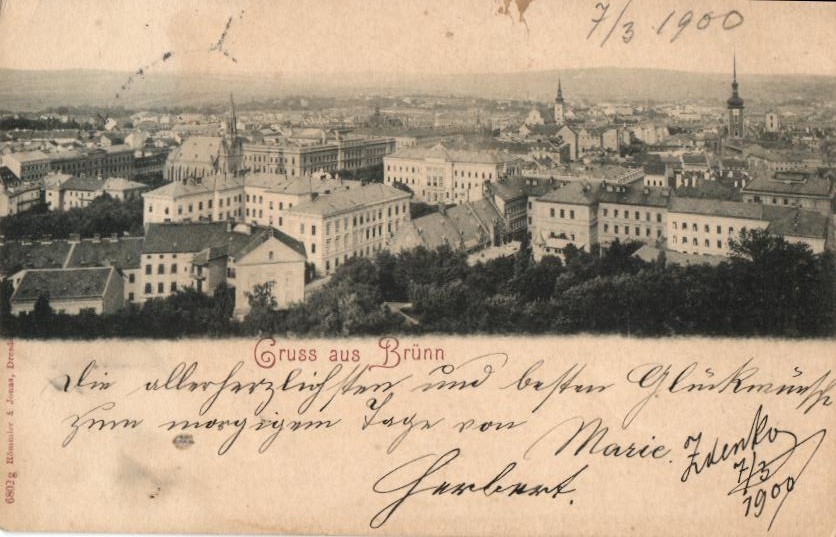 7/3 1900
Gruss aus Brünn
Die allerherzlichsten und besten Glückwünsche
zum morgigem Tage von Marie.
Zdenko
7/3
1900
Herbert.
6802 g Römmler & Jonas, Dresd